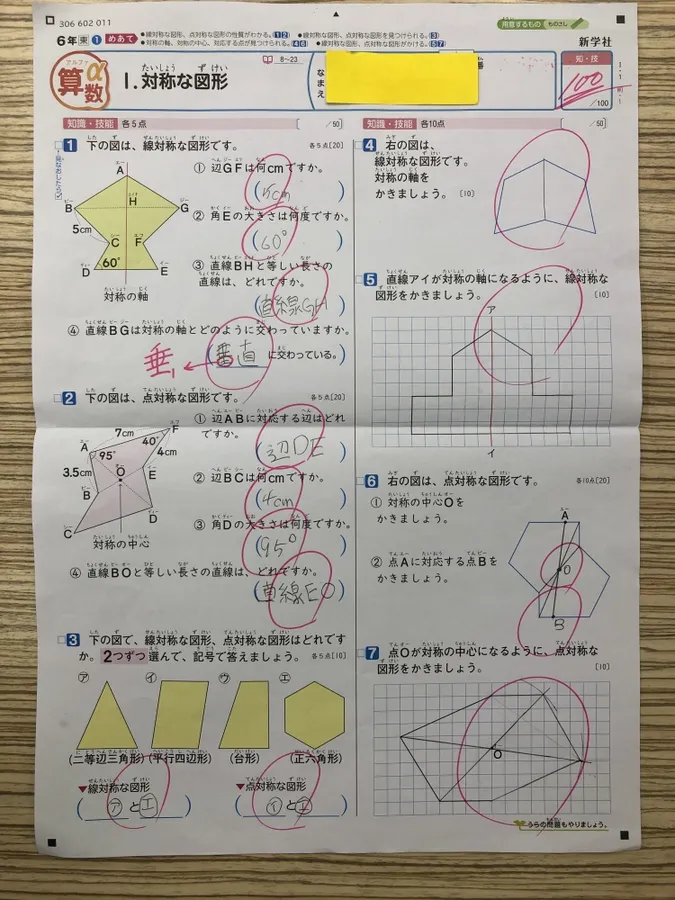 306 602 011
用意するもの ものさし
6年 東 1 めあて ●線対称な図形、点対称な図形の性質がわかる。(1 2) ●線対称な図形、点対称な図形を見つけられる。(3)
●対称の軸、対称の中心、対応する点が見つけられる。(4 6) ●線対称な図形、点対称な図形がかける。(5 7)
新学社
算α数
1.対称な図形
8~23
なまえ
番
知・技
100
/100
知識・技能 各5点 /50
1 下の図は、線対称な図形です。 各5点[20]
A
H
B
G
5cm
C F
60°
D E
対称の軸
① 辺GFは何cmですか。
(5cm)
② 角Eの大きさは何度ですか。
(60°)
③ 直線BHと等しい長さの
直線は、どれですか。
(直線GH)
④ 直線BGは対称の軸とどのように交わっていますか。
垂 (垂直 に交わっている。)
2 下の図は、点対称な図形です。 各5点[20]
7cm F
A 40°
95° 4cm
3.5cm O E
B
D
C
対称の中心
① 辺ABに対応する辺はどれ
ですか。
(辺DE)
② 辺BCは何cmですか。
(4cm)
③ 角Dの大きさは何度ですか。
(95°)
④ 直線BOと等しい長さの直線は、どれですか。
(直線EO)
3 下の図で、線対称な図形、点対称な図形はどれです
か。2つずつ選んで、記号で答えましょう。 各5点[10]
ア イ ウ エ
(二等辺三角形) (平行四辺形) (台形) (正六角形)
▼線対称な図形 ▼点対称な図形
(アとエ) (イとエ)
知識・技能 各10点 /50
4 右の図は、
線対称な図形です。
対称の軸を
かきましょう。 [10]
5 直線アイが対称の軸になるように、線対称な
図形をかきましょう。 [10]
ア
イ
6 右の図は、点対称な図形です。 各10点[20]
① 対称の中心Oを
かきましょう。
② 点Aに対応する点Bを
かきましょう。
A
O
B
7 点Oが対称の中心になるように、点対称な
図形をかきましょう。 [10]
O
うらの問題もやりましょう。